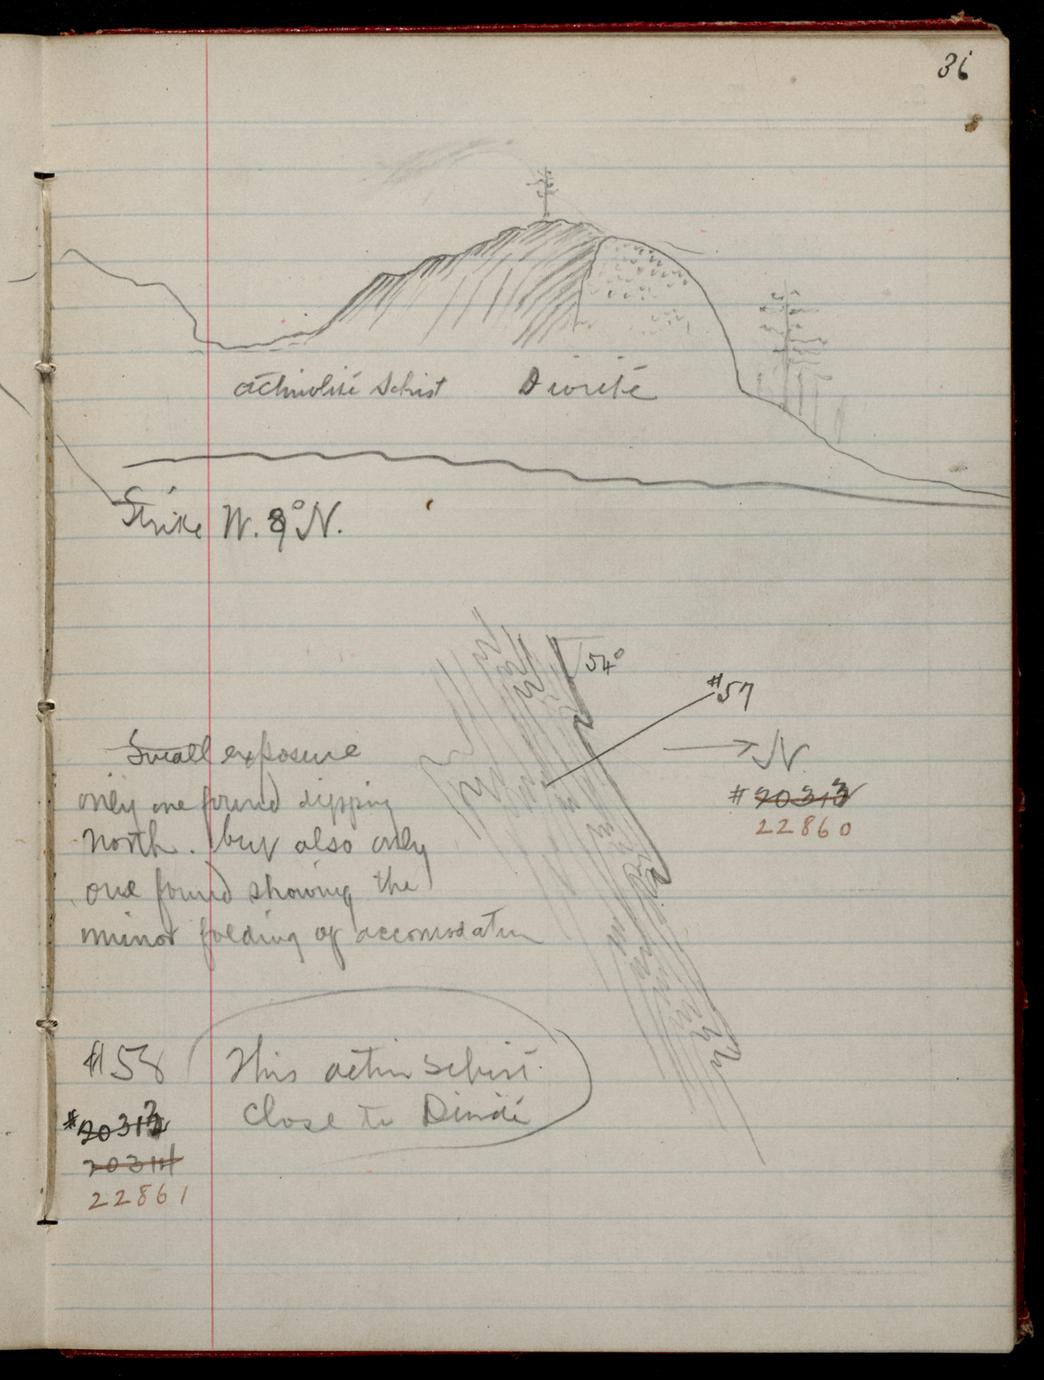 36
actinolite schist Diorite
Strike W. 8° N.
54°
#57
N
Small exposure
#20313
only one found dipping
22860
north. but also only
one found showing the
minor folding of accomodation
#58 This actin schist
close to Diorite
#20313
20314
22861